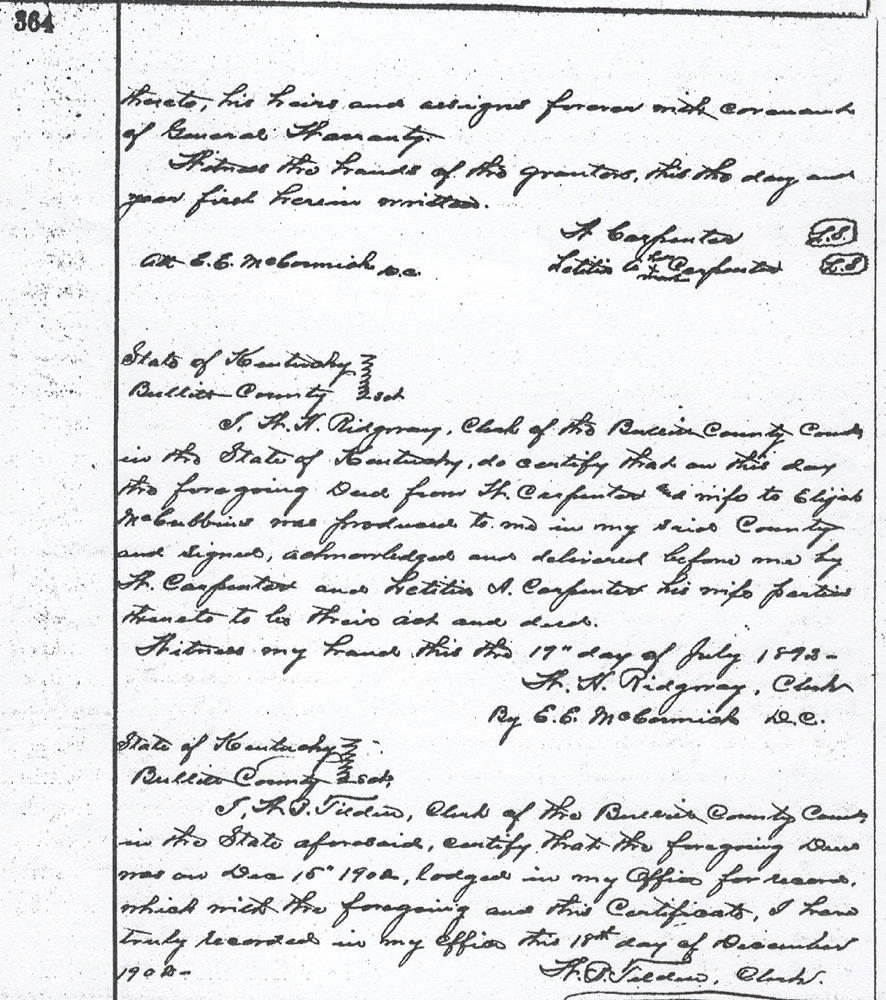 364
thereto, his heirs and assigns forever with covenant
of General Warranty.
Witness the hands of the grantors, this the day and
year first herein written.
W. Carpenter L.S.
Att E.E. McCormick D.C.
Letitia A her x mark Carpenter L.S
State of Kentucky
Bullitt County Sct
I, W. H. Ridgway, Clerk of the Bullitt County Court
in the State of Kentucky, do certify that on this day
the foregoing Deed from W. Carpenter and wife to Elijah
McCubbins was produced to me in my said County
and signed, acknowledged and delivered before me by
W. Carpenter and Letitia A. Carpenter his wife parties
thereto to be their act and deed.
Witness my hand this the 19" day of July 1892-
W. H. Ridgway, Clerk
By E. E. McCormick D.C.
State of Kentucky
Bullitt County Sct,
I, W. P. Tilden, Clerk of the Bullitt County Court
in the State aforesaid, certify that the foregoing Deed
was on Dec 15" 1902, lodged in my Office for record,
which with the foregoing and this Certificate, I have
truly recorded in my office this 18th day of December
1902-
W. P. Tilden, Clerk.